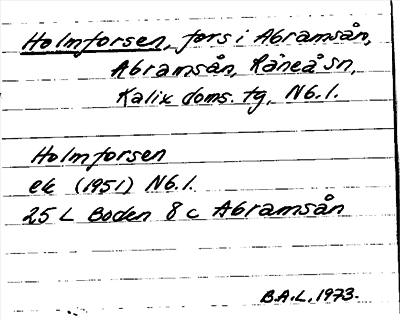 Holmforsen, fors i Abramsån,
Abramsån, Råneå sn,
Kalix doms. tg, Nb.l.
Holmforsen
ek (1951) Nb.l.
25 L Boden 8 c Abramsån
B.A.L. 1973.